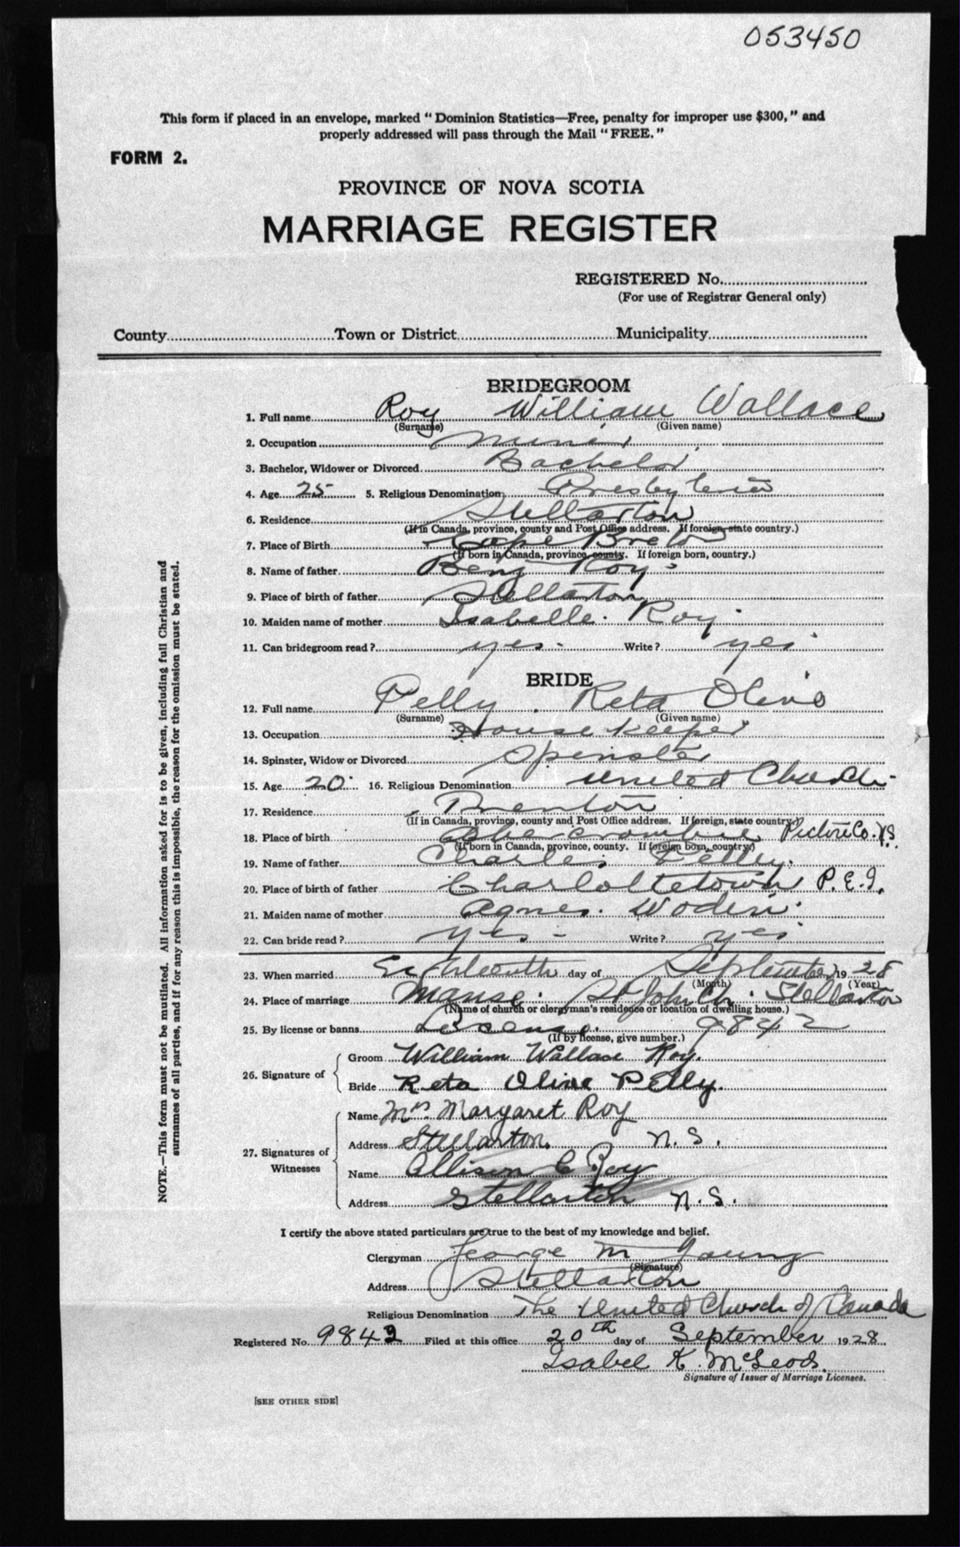 053450
This form if placed in an envelope, marked "Dominion Statistics—Free, penalty for improper use $300," and
properly addressed will pass through the Mail "FREE."
FORM 2.
PROVINCE OF NOVA SCOTIA
MARRIAGE REGISTER
REGISTERED No.
(For use of Registrar General only)
County Town or District Municipality
BRIDEGROOM
1. Full name Roy William Wallace
(Surname) (Given name)
2. Occupation Miner
3. Bachelor, Widower or Divorced Bachelor
4. Age 25 5. Religious Denomination Presbyterian
6. Residence Stellarton
(If in Canada, province, county and Post Office address. If foreign state country.)
7. Place of Birth Cape Breton
(If born in Canada, province county. If foreign born, country.)
8. Name of father Benj Roy
9. Place of birth of father Stellarton
10. Maiden name of mother Isabelle Roy
11. Can bridegroom read? yes Write? yes
BRIDE
12. Full name Pelly Reta Olive
(Surname) (Given name)
13. Occupation House keeper
14. Spinster, Widow or Divorced Spinster
15. Age 20 16. Religious Denomination United Church
17. Residence Trenton
(If in Canada, province, county and Post Office address. If foreign, state country)
18. Place of birth Abercrombie Pictou Co. N.S.
(If born in Canada, province, county. If foreign born, country)
19. Name of father Charles Pelley
20. Place of birth of father Charlottetown P.E.I.
21. Maiden name of mother Agnes
22. Can bride read? yes Write? yes
23. When married Eighteenth day of September 1928
(Month) (Year)
24. Place of marriage Manse St John Ch. Stellarton
(Name of church or clergyman's residence or location of dwelling house.)
25. By license or banns License 9842
(If by license, give number.)
26. Signature of Groom William Wallace Roy.
Bride Reta Olive Pelly.
27. Signatures of Witnesses Name Mrs Margaret Roy
Address Stellarton. N.S.
Name Allison C Roy
Address Stellarton N.S.
I certify the above stated particulars are true to the best of my knowledge and belief.
Clergyman George M Young
(Signature)
Address Stellarton
Religious Denomination The United Church of Canada
Registered No. 9842 Filed at this office 20th day of September 1928
Isabel K. McLeod.
Signature of Issuer of Marriage Licenses.
[SEE OTHER SIDE]
NOTE.—This form must not be mutilated. All information asked for is to be given, including full Christian and
surnames of all parties, and if for any reason this is impossible, the reason for the omission must be stated.